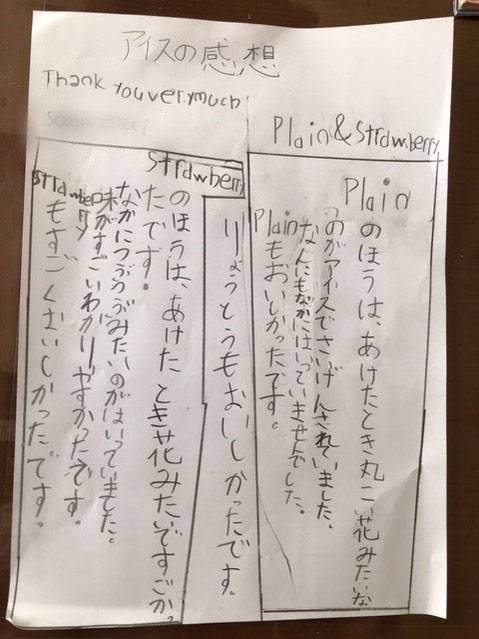 アイスの感想
Thank you verymuch
Plain & Strawberry
Plain のほうは、あけたとき丸こい花みたいな
のがアイスでさいげんされていました。
なんにもなかにはいっていませんでした。
Plain もおいしかったです。
りょうとうもおいしかったです。
Strawberry のほうは、あけたとき花みたいですごか
たです。
なかにつぶつぶみたいのがはいていました。
味がすごいわかりやすかったです。
Strawberry もすごくおいしかったです。